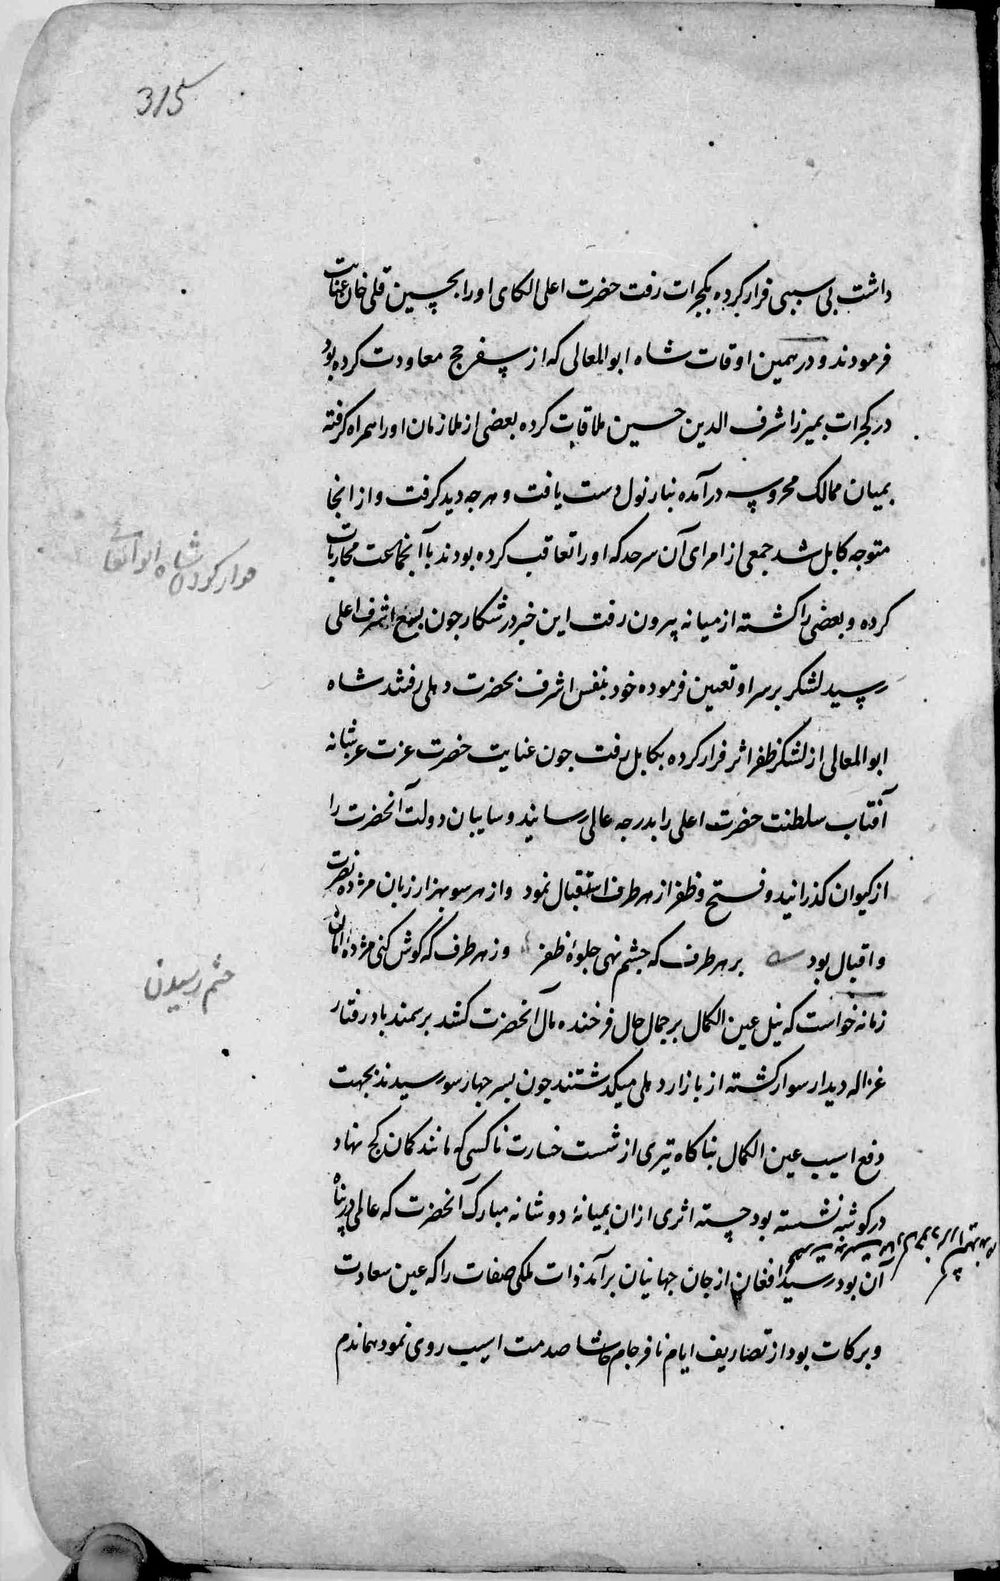 315
داشت بی سببی فرار کرده بکجرات رفت حضرت اعلی الکای او را بحسین قلی خان عنایت
فرمودند و در همین اوقات شاه ابوالمعالی که از سفر حج معاودت کرده بود
در کجرات بمیرزا شرف الدین حسین ملاقات کرده بعضی از ملازمان او را همراه کرفته
بمیان ممالک محروسه درآمده بنارنول دست یافت و هرچه دید کرفت و از انجا
متوجه کابل شد جمعی از امرای آن سرحد که او را تعاقب کرده بودند با آنجماعت محاربات
فرار کردن شاه ابوالمعالی
کرده و بعضی را کشته از میانه بیرون رفت این خبر در شکار جون بسمع اشرف اعلی
رسید لشکر بر سر او تعیین فرموده خود بنفس اشرف بحضرت دهلی رفتند شاه
ابوالمعالی از لشکر ظفر اثر فرار کرده بکابل رفت جون عنایت حضرت عزت عز شانه
آفتاب سلطنت حضرت اعلی را بدرجه عالی رسانید و سایبان دولت آنحضرت را
از کیوان کذرانید و فتح و ظفر از هر طرف استقبال نمود و از هر سو بهزار زبان مژده نصرت
و اقبال بود بر هر طرف که چشم نهی جلوهٔ ظفر وز هر طرف که کوش کنی مژدهٔ امان
چشم رسیدن
زمانه خواست که نیل عین الکمال بر جمال حال فرخنده مآل آنحضرت کشد بر سمند باد رفتار
غزاله دیدار سوار کشته از بازار دهلی میکذشتند جون بسر جهار سو رسیدند بجهت
دفع اسیب عین الکمال بناکاه تیری از شست خسارت ناکسی که مانند کمان کج نهاد
در کوشه نشسته بود جسته اثری ازان بمیانهٔ دو شانه مبارک آنحضرت که عالمی در پناه
آن بود رسید افغان از جان جهانیان برآمد ذات ملکی صفات را که عین سعادت
و برکات بود از تصاریف ایام نافرجام حاشا صدمت اسیب روی نمود هماندم